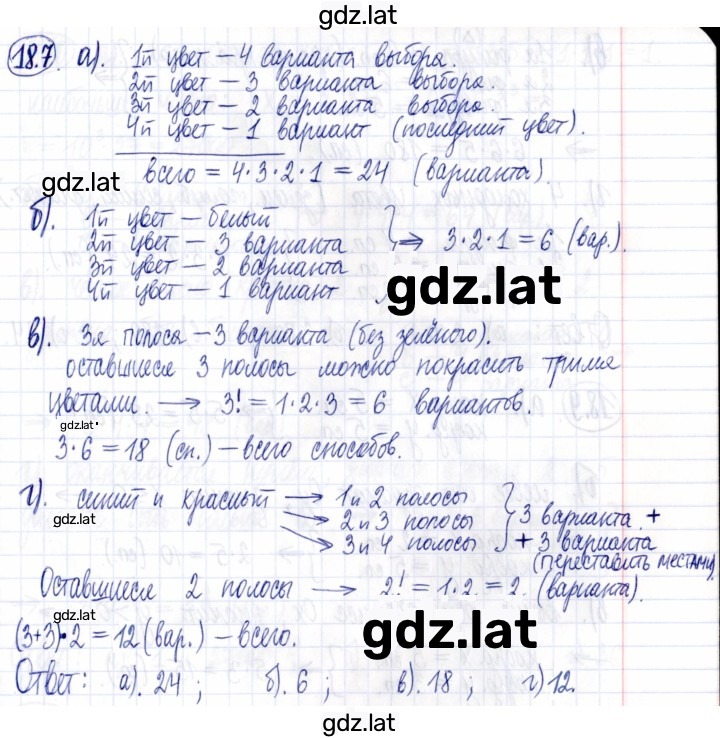 gdz.lat
18.7. а). 1й цвет – 4 варианта выбора.
2й цвет – 3 варианта выбора.
3й цвет – 2 варианта выбора.
4й цвет – 1 вариант (последний цвет).
gdz.lat
всего = 4·3·2·1 = 24 (варианта).
б). 1й цвет – белый
2й цвет – 3 варианта ⇒ 3·2·1 = 6 (вар.).
3й цвет – 2 варианта
4й цвет – 1 вариант
gdz.lat
в). 3я полоса – 3 варианта (без зелёного).
оставшиеся 3 полосы можно покрасить тремя
цветами. → 3! = 1·2·3 = 6 вариантов.
gdz.lat
3·6 = 18 (сп.) – всего способов.
г). синий и красный → 1 и 2 полосы
→ 2 и 3 полосы } 3 варианта +
gdz.lat
→ 3 и 4 полосы + 3 варианта
(переставить местами).
Оставшиеся 2 полосы → 2! = 1·2 = 2 (варианта).
gdz.lat
(3+3)·2 = 12 (вар.) – всего.
gdz.lat
Ответ: а). 24 ; б). 6 ; в). 18 ; г) 12.
gdz.lat